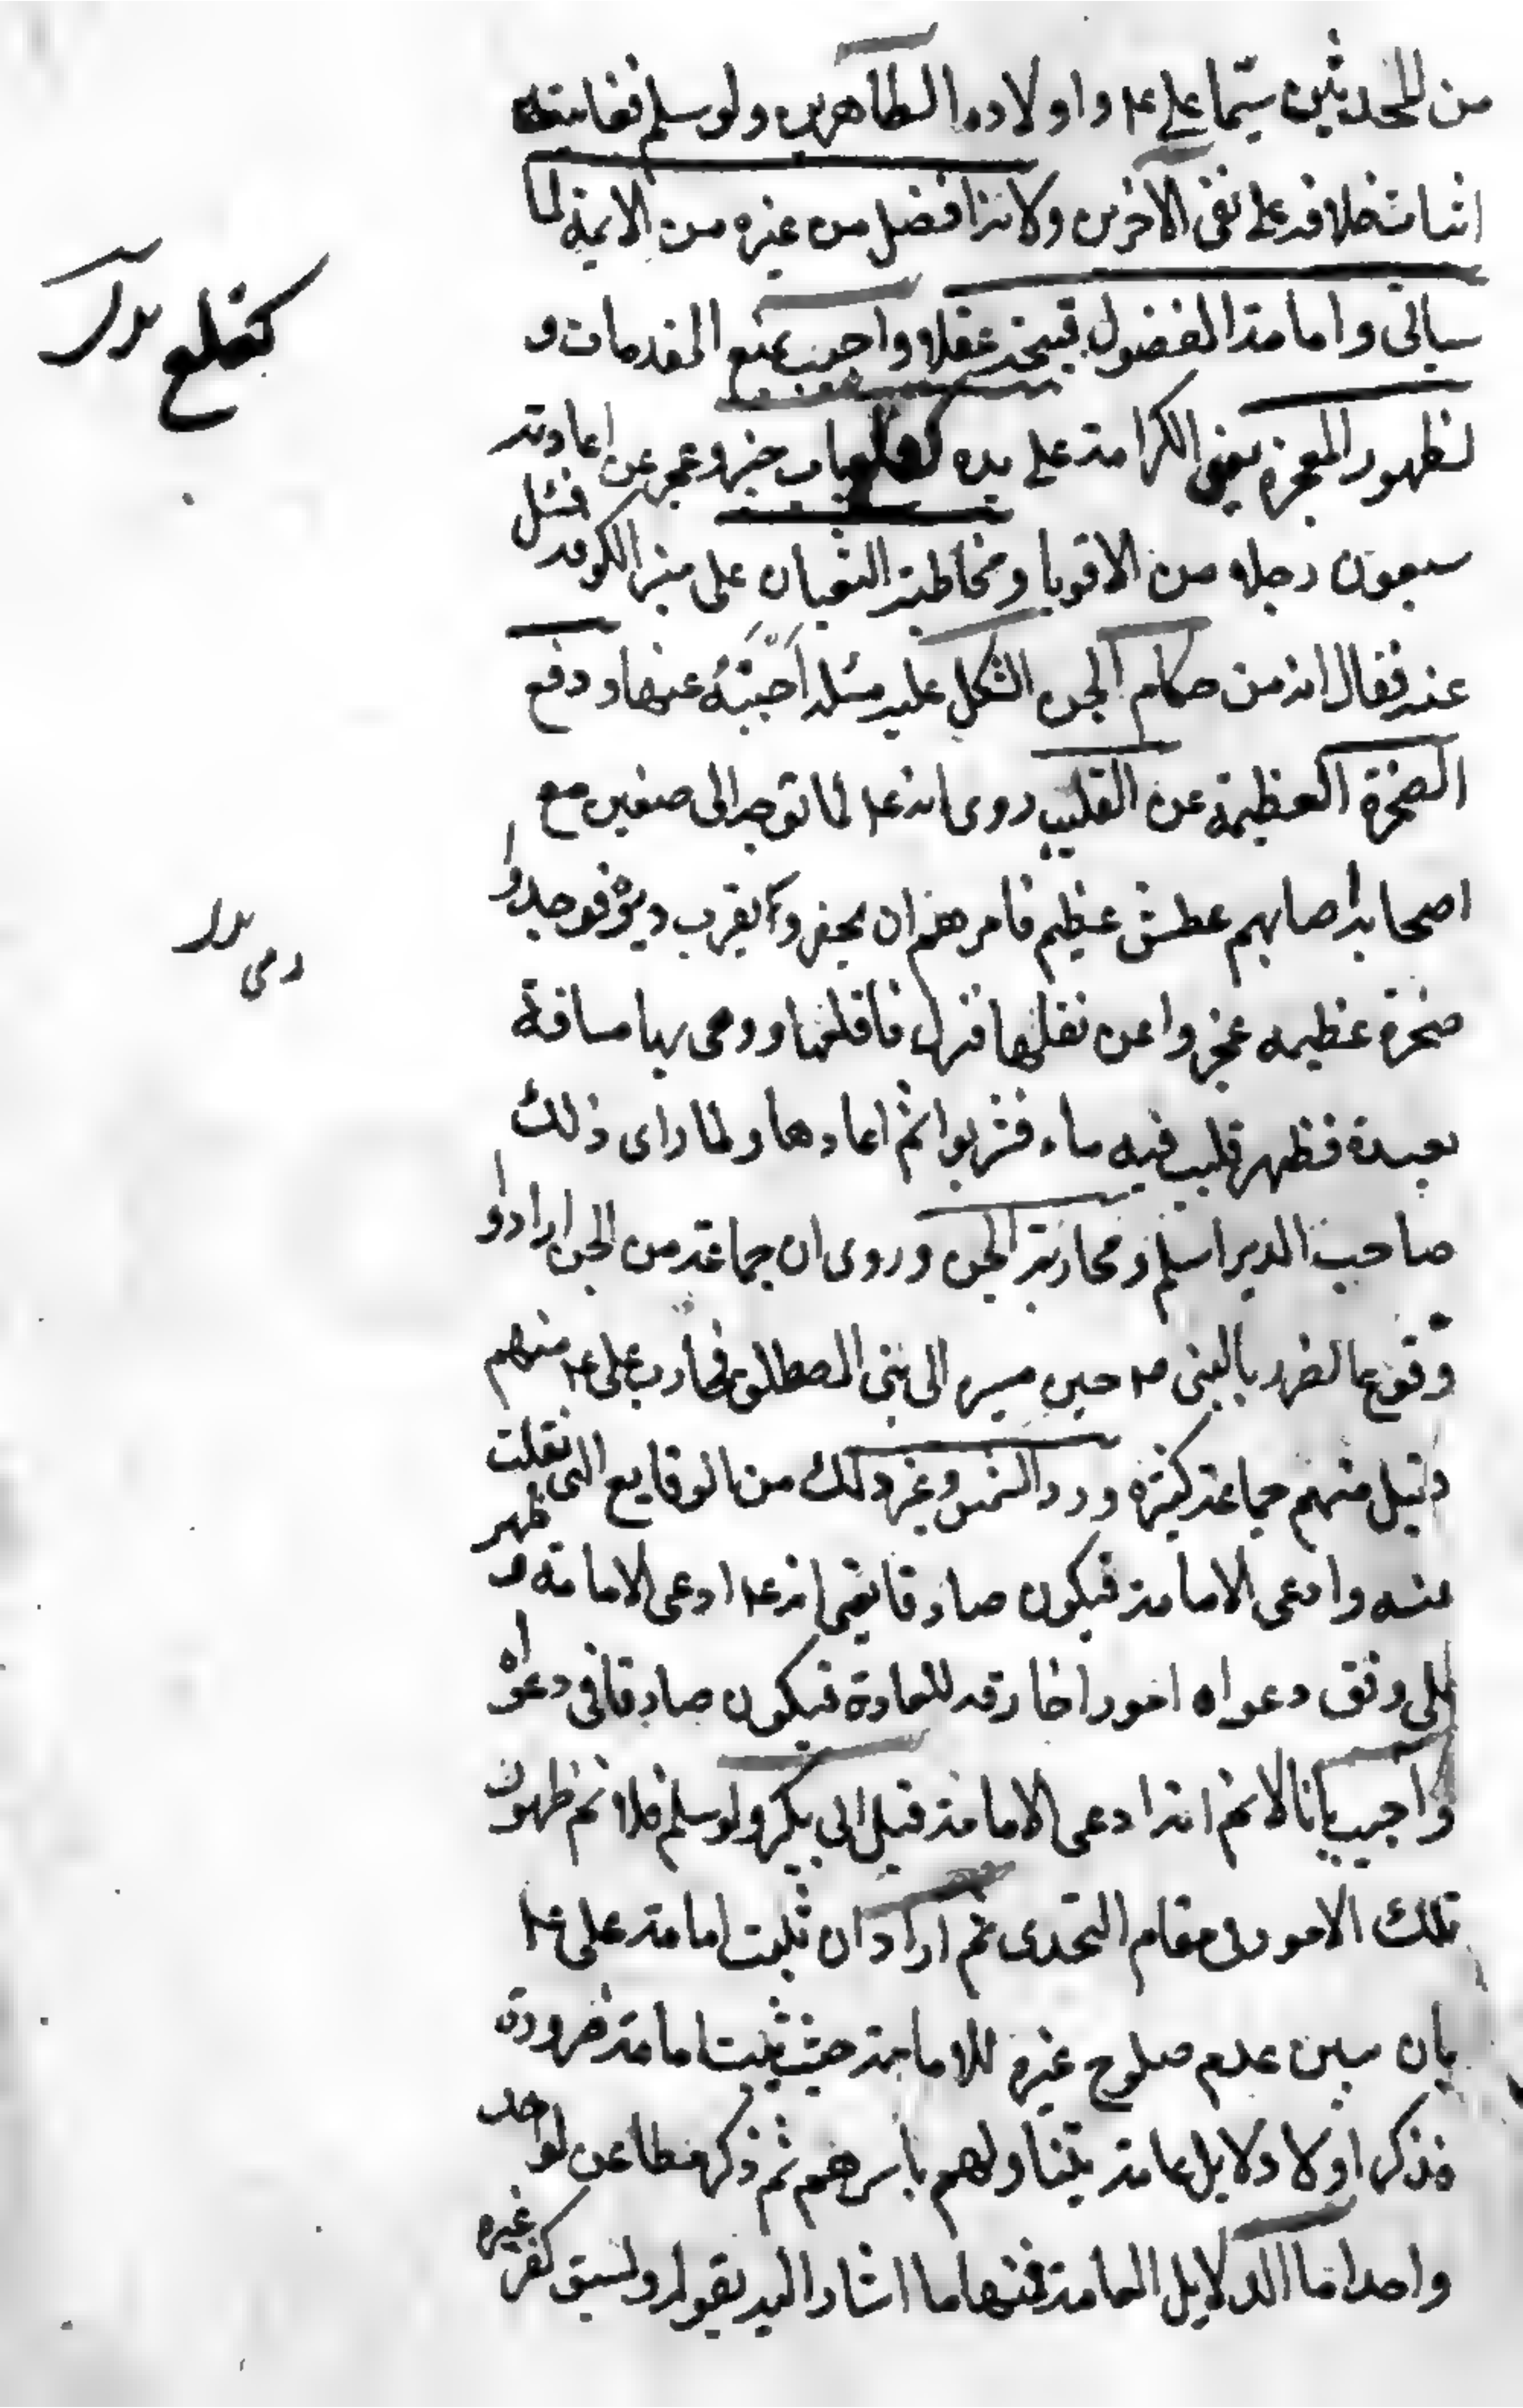 من المحدثين سيّما علي ع‍ م واولاده الطاهرين ولو سلم فغايته
اثبات خلافته لا نفى الآخرين ولانه افضل من غيره من الايمة لما
سياتى وامامة المفضول قبيحة عقلا واجيب بمنع المقدمات و
لظهور المعجزة يعنى الكرامة على يده كقلع باب خيبر وعجز عن اعادته
سبعون رجلا من الاقويا ومخاطبة الثعبان على منبر الكوفة فسئل
عنه فقال انه من حكام الجن اشكل عليه مسئلة اَجَبْتُهُ عنها ودفع
الصخرة العظيمة عن القليب روى انه ع‍ م لما توجه الى صفين مع
اصحابه اصابهم عطش عظيم فامرهم ان يحفروا بقرب دير فوجدوا
صخرة عظيمه عجزوا عن نقلها فنزل فاقلعها ورمى بها مسافة
بعيدة فظهر قليب فيه ماء فشربوا ثم اعادها ولما راى ذلك
صاحب الدير اسلم ومحاربة الجن وروى ان جماعة من الجن ارادوا
وقوع الضرر بالنبى ص‍ م حين مسيره الى بنى المصطلق فحارب على ع‍ م منهم
وقتل منهم جماعة كثيره ورد الشمس وغير ذلك من الوقايع التى نقلت
عنه وادعى الامامة فيكون صادقا يعنى انه ع‍ م ادعى الامامة وظهر
على وفق دعواه امورا خارقه للعادة فيكون صادقا فى دعواه
واجيب بانا لا نم انه ادعى الامامة قبل ابى بكر ولو سلم فلا نم ظهور
تلك الامور فى مقام التحدى ثم اراد ان يثبت امامة على ع‍ م
بان يبين عدم صلوح غيره للامامة حيث يثبت امامته ضرورة
فذكر اولا دلايل عامة يتناولهم باسرهم ثم ذكر مطاعن لواحد
واحد اما الدلايل العامة فمنها ما اشار اليه بقوله ولسبق كفر غيره
كقلع بدل
رمى بدل